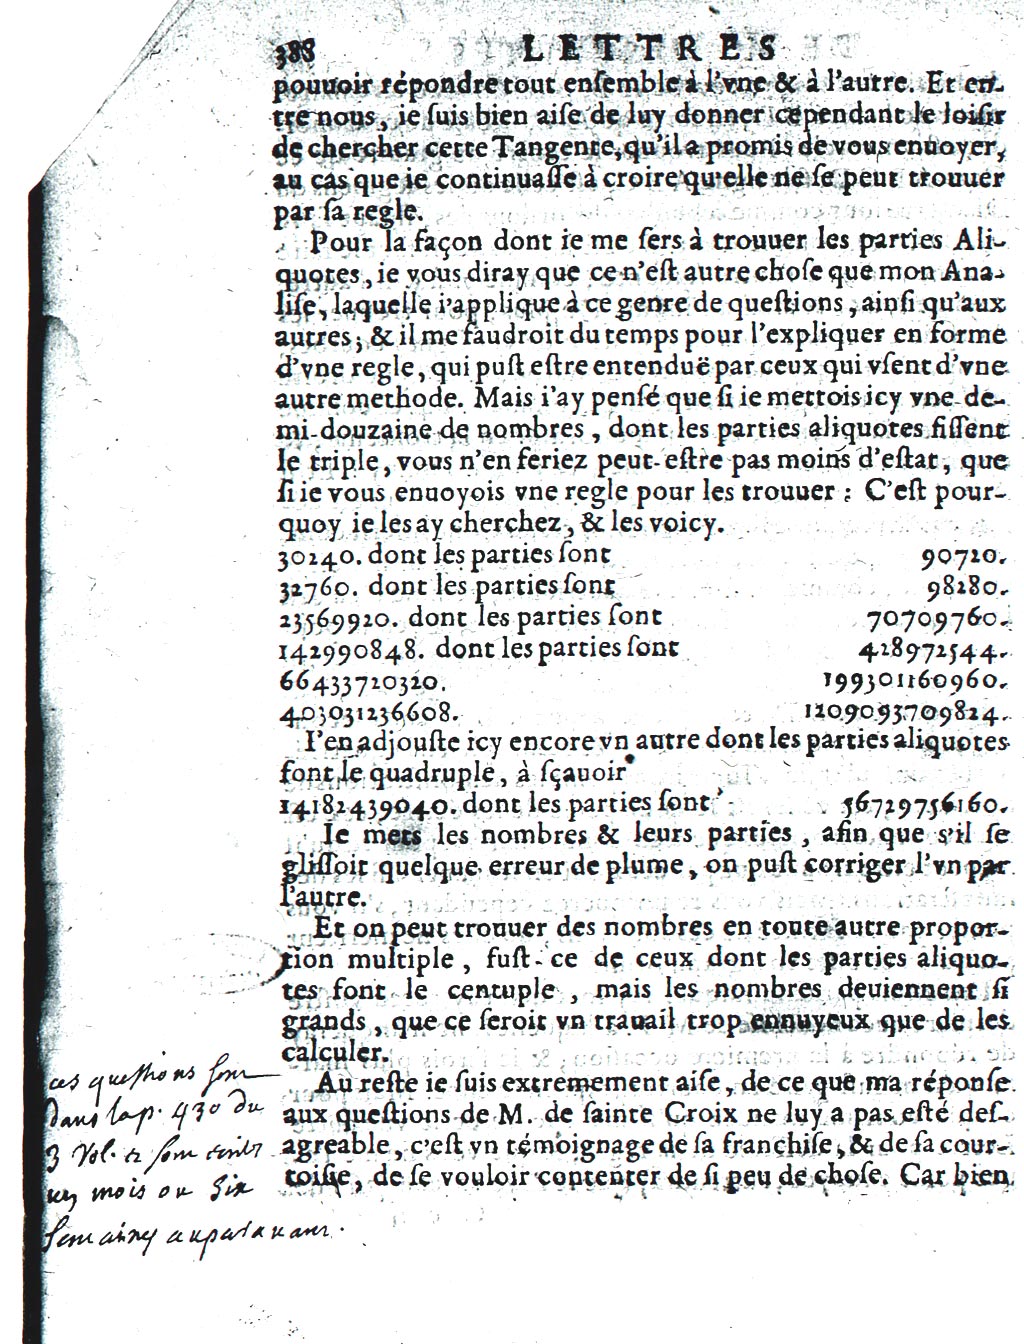 388 LETTRES
pouuoir répondre tout enſemble à l'vne & à l'autre. Et en-
tre nous, ie ſuis bien aiſe de luy donner cependant le loiſir
de chercher cette Tangente, qu'il a promis de vous enuoyer,
au cas que ie continuaſſe à croire qu'elle ne ſe peut trouuer
par ſa regle.
Pour la façon dont ie me ſers à trouuer les parties Ali-
quotes, ie vous diray que ce n'eſt autre choſe que mon Ana-
liſe, laquelle i'applique à ce genre de queſtions, ainſi qu'aux
autres; & il me faudroit du temps pour l'expliquer en forme
d'vne regle, qui puſt eſtre entenduë par ceux qui vſent d'vne
autre methode. Mais i'ay penſé que ſi ie mettois icy vne de-
mi-douzaine de nombres, dont les parties aliquotes fiſſent
le triple, vous n'en feriez peut-eſtre pas moins d'eſtat, que
ſi ie vous enuoyois vne regle pour les trouuer: C'eſt pour-
quoy ie les ay cherchez, & les voicy.
30240. dont les parties ſont 90720.
32760. dont les parties ſont 98280.
23569920. dont les parties ſont 70709760.
142990848. dont les parties ſont 428972544.
66433720320. 199301160960.
403031236608. 1209093709824.
I'en adjouſte icy encore vn autre dont les parties aliquotes
font le quadruple, à ſçauoir
14182439040. dont les parties ſont 56729756160.
Ie mets les nombres & leurs parties, afin que s'il ſe
gliſſoit quelque erreur de plume, on puſt corriger l'vn par
l'autre.
Et on peut trouuer des nombres en toute autre propor-
tion multiple, fuſt-ce de ceux dont les parties aliquo-
tes font le centuple, mais les nombres deuiennent ſi
grands, que ce ſeroit vn trauail trop ennuyeux que de les
calculer.
Au reſte ie ſuis extremement aiſe, de ce que ma réponſe
aux queſtions de M. de ſainte Croix ne luy a pas eſté deſ-
agreable, c'eſt vn témoignage de ſa franchiſe, & de ſa cour-
toiſie, de ſe vouloir contenter de ſi peu de choſe. Car bien
ces questions sont
dans la p. 430 du
3 Vol. et sont
un mois ou six
semaines auparavant.